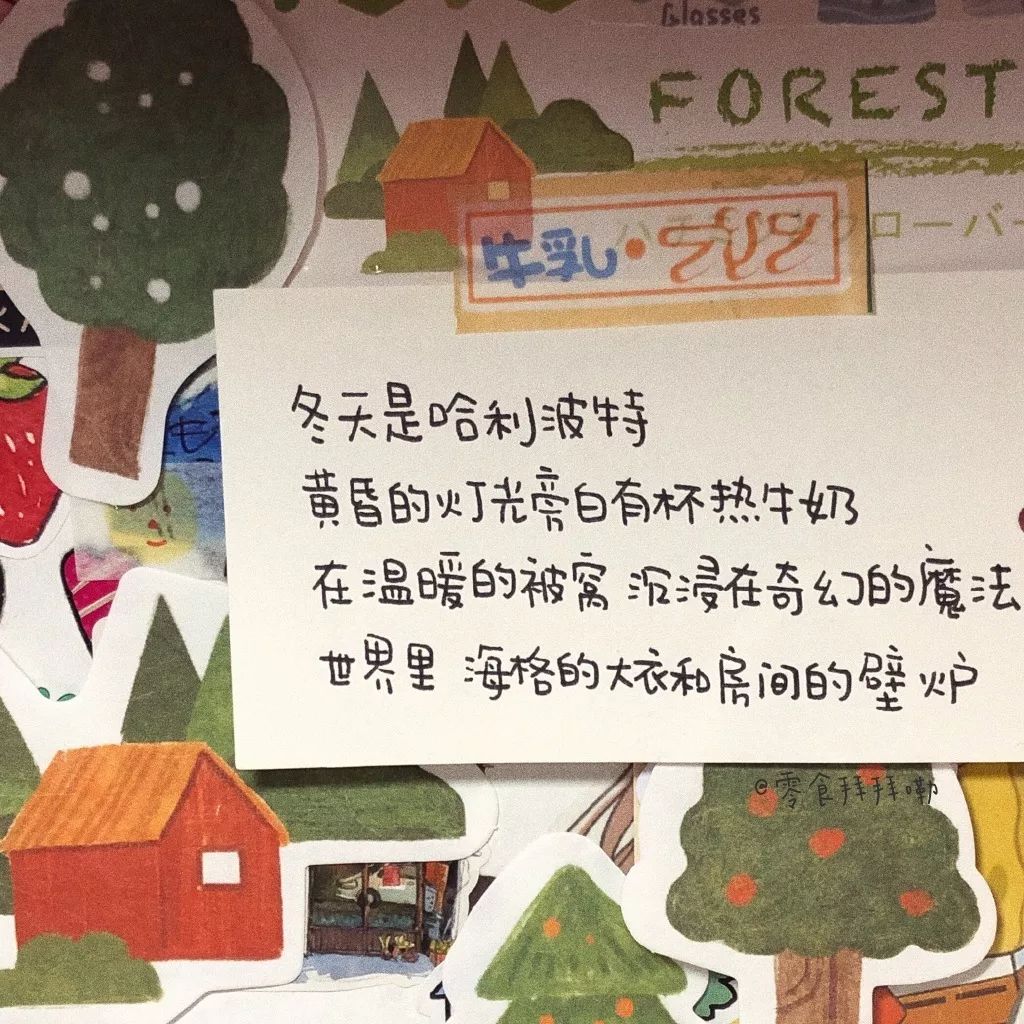 Glasses
FOREST
ローバー
牛乳・プリン
冬天是哈利波特
黄昏的灯光旁白有杯热牛奶
在温暖的被窝 沉浸在奇幻的魔法
世界里 海格的大衣和房间的壁炉
@零食拜拜嘞